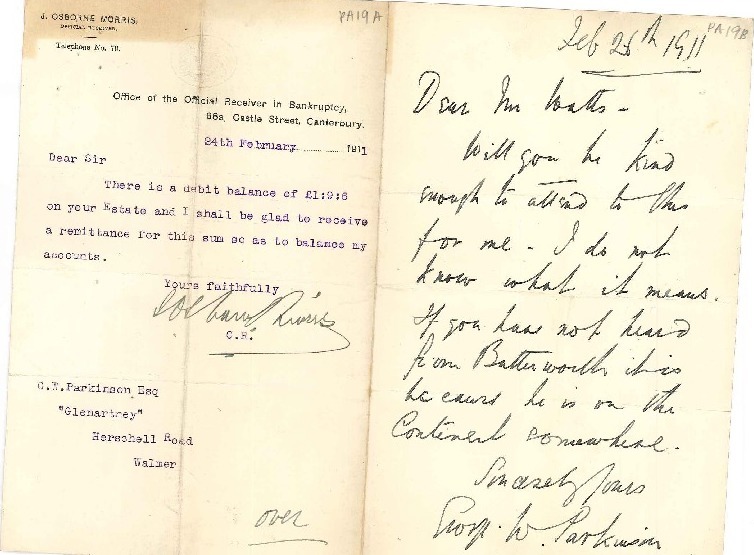 J. OSBORNE MORRIS,
OFFICIAL RECEIVER.
Telephone No. 78.
PA19A
Office of the Official Receiver in Bankruptcy,
68a, Castle Street, Canterbury.
24th February 1911
Dear Sir
There is a debit balance of £1:9:6
on your Estate and I shall be glad to receive
a remittance for this sum so as to balance my
accounts.
Yours faithfully
J Osborne Morris
O.R.
Parkinson Esq
"Glenartney"
Herschell Road
Walmer
over
PA19B
Feb 26th 1911
Dear Mr Watts -
Will you be kind
enough to attend to this
for me - I do not
know what it means.
If you have not heard
from Butterworth it is
because he is on the
Continent somewhere.
Sincerely yours
W. Parkinson